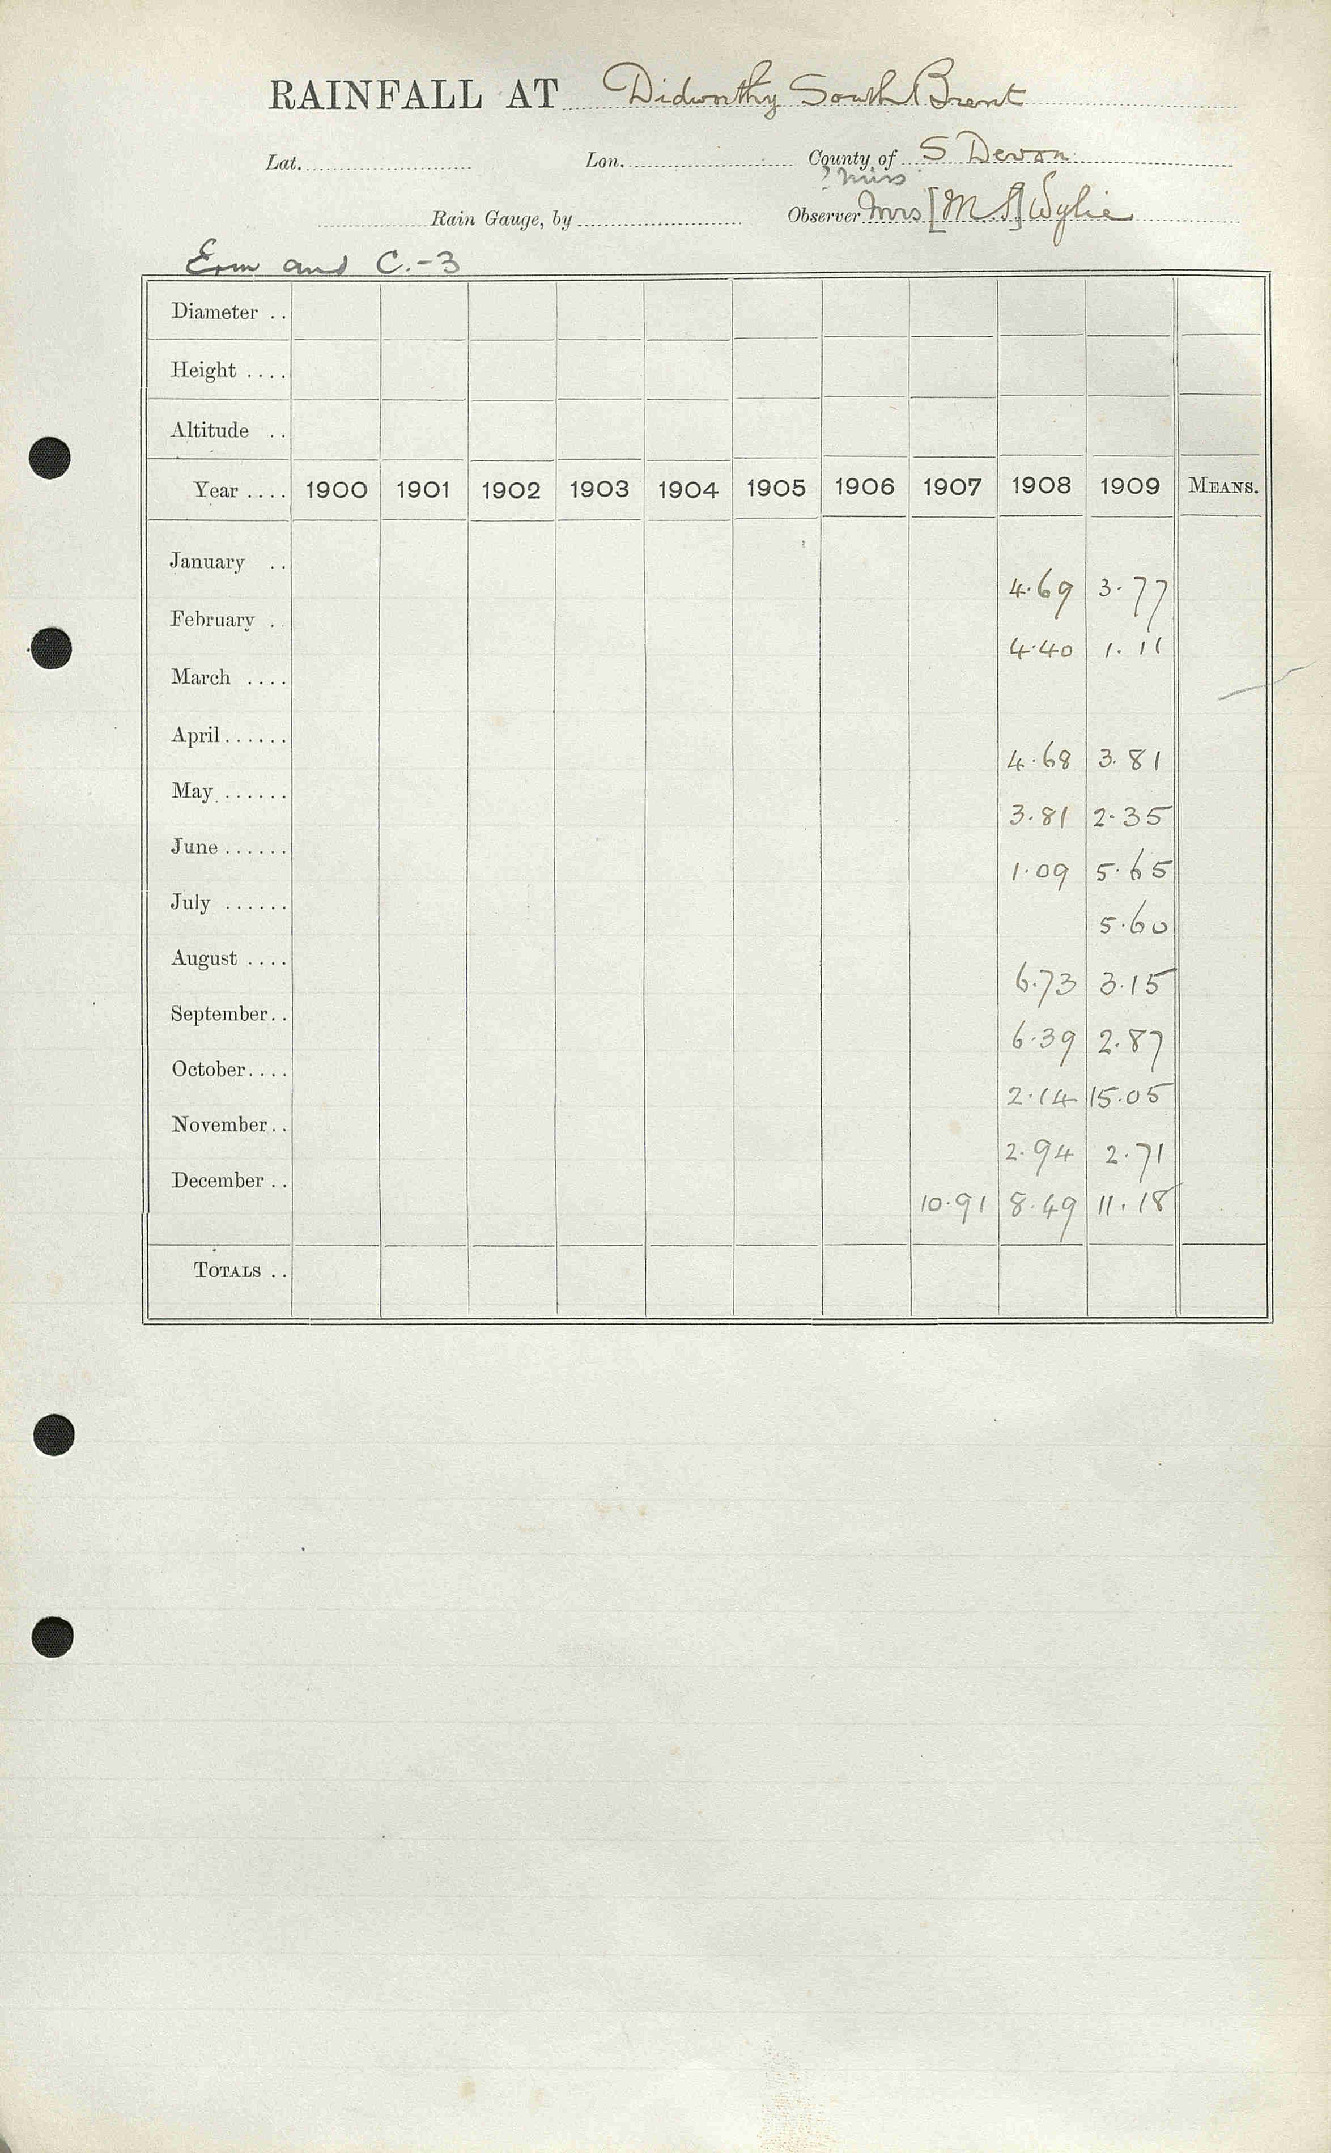 RAINFALL AT Didworthy South Brent
Lat. Lon. County of S Devon
? Miss
Rain Gauge, by Observer Mrs [M S] Wylie
Erm and C.-3
Diameter ..
Height ....
Altitude ..
Year .... 1900 1901 1902 1903 1904 1905 1906 1907 1908 1909 MEANS.
January ..
4.69 3.77
February .
4.40 1.11
March ....
April......
4.68 3.81
May.......
3.81 2.35
June ......
1.09 5.65
July ......
5.60
August ....
6.73 3.15
September..
6.39 2.87
October....
2.14 15.05
November..
2.94 2.71
December ..
10.91 8.49 11.18
TOTALS ..